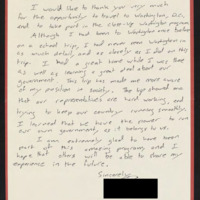 I would like to thank you very much
for the opportunity to travel to Washington, D.C.,
and to take part in the close-up Washington program.
Although I had been to Washington once before
on a school trip, I had never seen Washington in
as much detail and as closely as I did on this
trip. I had a great time while I was there
as well as learning a great deal about our
government. This trip has made me more aware
of my position in society. The trip showed me
that our representatives are hard working, and
trying to keep our country running smoothly.
I learned that we have the power to run
our own government, as it belongs to us.
I am extremely glad to have been
part of this amazing program, and I
hope that others will be able to share my
experience in the future.
Sincerely,